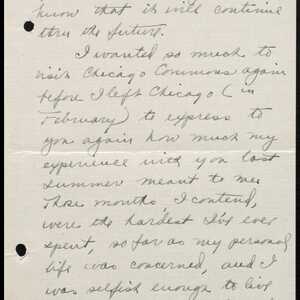 know that it will continue
thru the future.
I wanted so much to
visit Chicago Commons again
before I left Chicago (in
February) to express to
you again how much my
experience with you last
summer meant to me.
Those months I contend,
were the hardest I've ever
spent, so far as my personal
life was concerned, and I
was selfish enough to live